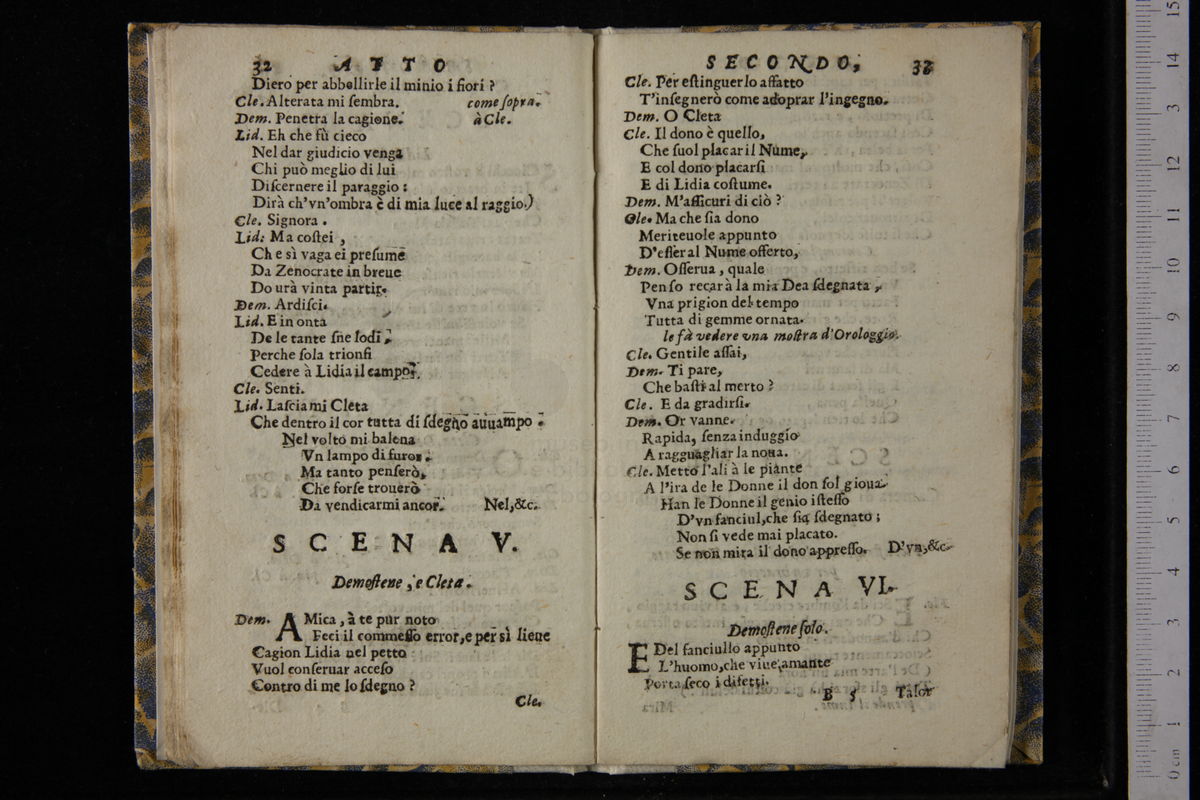 32 ATTO
Diero per abbellirle il minio i fiori ?
Cle. Alterata mi ſembra. come ſopra.
Dem. Penetra la cagione. à Cle.
Lid. Eh che fù cieco
Nel dar giudicio venga
Chi può meglio di lui
Diſcernere il paraggio :
Dirà ch'vn'ombra è di mia luce al raggio.)
Cle. Signora .
Lid: Ma coſtei ,
Che sì vaga ei preſume
Da Zenocrate in breue
Dourà vinta partir.
Dem. Ardiſci.
Lid. E in onta
De le tante ſue lodi ,
Perche ſola trionfi
Cedere à Lidia il campo.
Cle. Senti.
Lid. Laſciami Cleta
Che dentro il cor tutta di ſdegno auuampo .
Nel volto mi balena
Vn lampo di furor .
Ma tanto penſerò,
Che forſe trouerò
Da vendicarmi ancor. Nel,&c.
SCENA V.
Demoſtene , e Cleta.
Dem. AMica , à te pur noto
Feci il commeſſo error, e per sì liene
Cagion Lidia nel petto
Vuol conſeruar acceſo
Contro di me lo ſdegno ?
Cle.
SECONDO, 33
Cle. Per eſtinguerlo affatto
T'inſegnerò come adoprar l'ingegno.
Dem. O Cleta
Cle. Il dono è quello,
Che ſuol placar il Nume,
E col dono placarſi
E di Lidia coſtume.
Dem. M'aſſicuri di ciò ?
Cle. Ma che ſia dono
Meriteuole appunto
D'eſſer al Nume offerto,
Dem. Oſſerua , quale
Penſo recarà la mia Dea ſdegnata ,
Vna prigion del tempo
Tutta di gemme ornata.
le fà vedere vna moſtra d'Orologgio.
Cle. Gentile aſſai,
Dem. Ti pare,
Che baſti al merto ?
Cle. E da gradirſi.
Dem. Or vanne.
Rapida, ſenza induggio
A ragguagliar la noua.
Cle. Metto l'ali à le piante
A l'ira de le Donne il don ſol gioua.
Han le Donne il genio iſteſſo
D'vn fanciul, che ſia ſdegnato ;
Non ſi vede mai placato.
Se non mira il dono appreſſo. D'vn,&c.
SCENA VI.
Demoſtene ſolo.
EDel fanciullo appunto
L'huomo, che viue amante
Porta ſeco i difetti.
B 5 Talor
0 cm 1 2 3 4 5 6 7 8 9 10 11 12 13 14 15